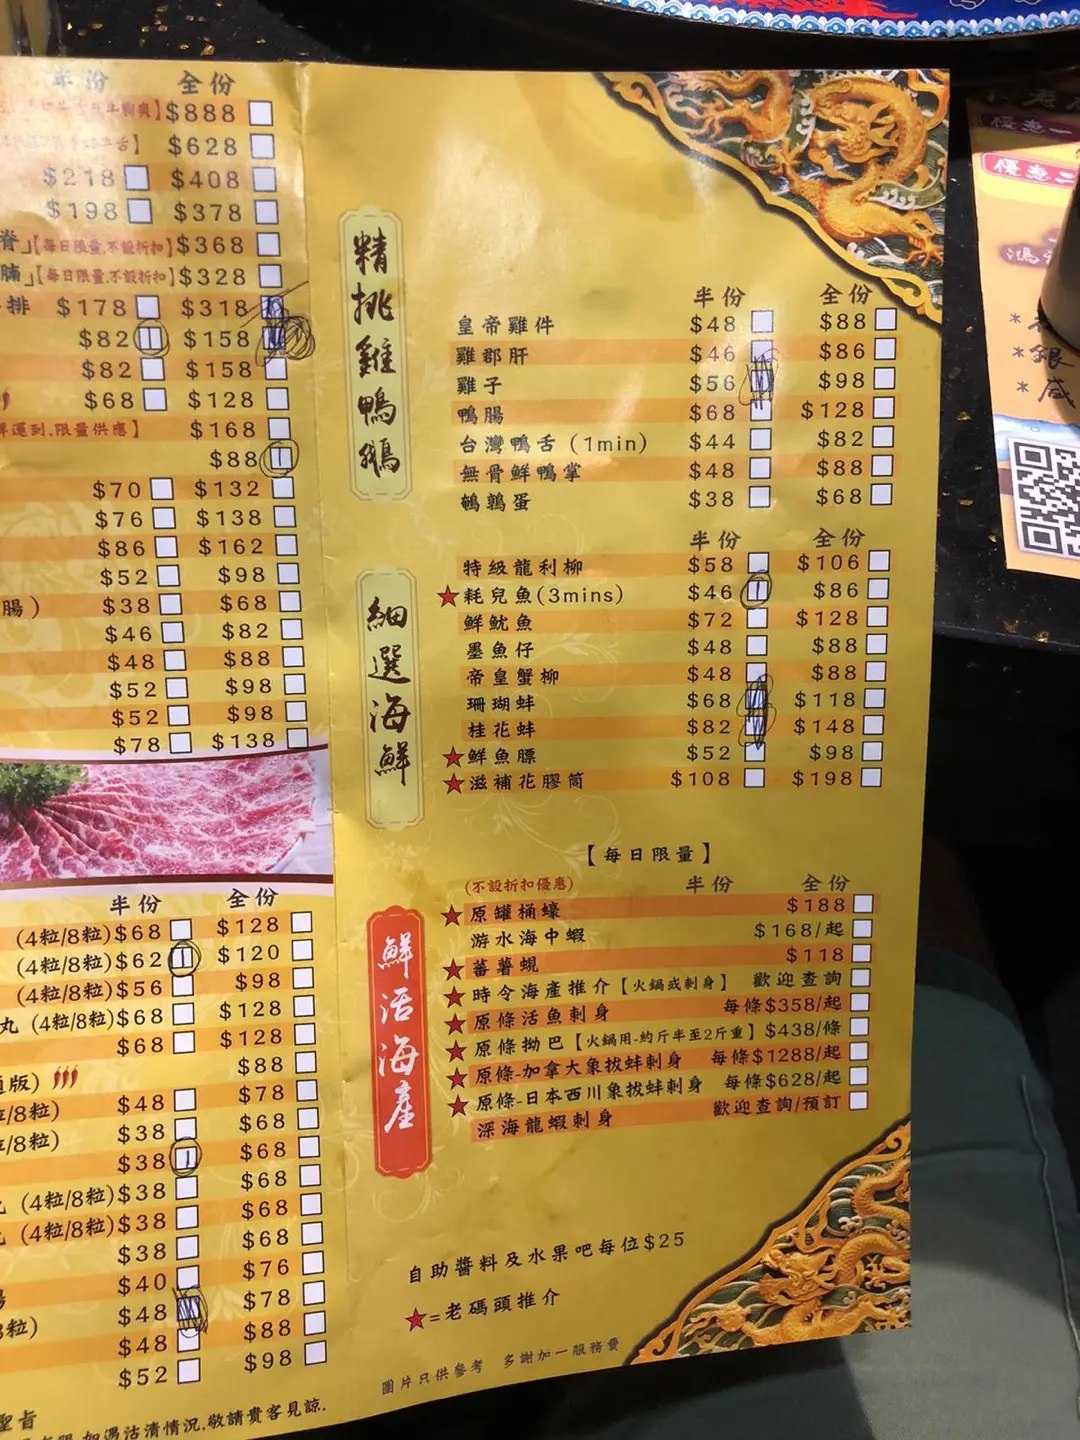 半份 全份
牛胸爽】$888
$628
$218 $408
$198 $378
脊」【每日限量,不設折扣】$368
腩」【每日限量,不設折扣】$328
排 $178 $318
$82 $158
$82 $158
$68 $128
運到,限量供應】 $168
$88
$70 $132
$76 $138
$86 $162
$52 $98
腸) $38 $68
$46 $82
$48 $88
$52 $98
$52 $98
$78 $138
半份 全份
(4粒/8粒)$68 $128
(4粒/8粒)$62 $120
(4粒/8粒)$56 $98
丸 (4粒/8粒)$68 $128
$68 $128
版) $88
/8粒) $48 $78
/8粒) $38 $68
$38 $68
(4粒/8粒)$38 $68
(4粒/8粒)$38 $68
$38 $68
$40 $76
$48 $78
粒) $48 $88
$52 $98
聖旨
如遇沽清情況,敬請貴客見諒.
精挑雞鴨鵝
半份 全份
皇帝雞件 $48 $88
雞郡肝 $46 $86
雞子 $56 $98
鴨腸 $68 $128
台灣鴨舌 (1min) $44 $82
無骨鮮鴨掌 $48 $88
鵪鶉蛋 $38 $68
細選海鮮
半份 全份
特級龍利柳 $58 $106
★耗兒魚(3mins) $46 $86
鮮魷魚 $72 $128
墨魚仔 $48 $88
帝皇蟹柳 $48 $88
珊瑚蚌 $68 $118
桂花蚌 $82 $148
★鮮魚膘 $52 $98
★滋補花膠筒 $108 $198
【每日限量】
鮮活海產
(不設折扣優惠) 半份 全份
★原罐桶蠔 $188
游水海中蝦 $168/起
★蕃薯蜆 $118
★時令海產推介【火鍋或刺身】 歡迎查詢
★原條活魚刺身 每條$358/起
★原條拗巴【火鍋用-約斤半至2斤重】 $438/條
★原條-加拿大象拔蚌刺身 每條$1288/起
★原條-日本西川象拔蚌刺身 每條$628/起
深海龍蝦刺身 歡迎查詢/預訂
自助醬料及水果吧每位$25
★=老碼頭推介
圖片只供參考 多謝加一服務費
優惠一
優惠二
*銀
*咸